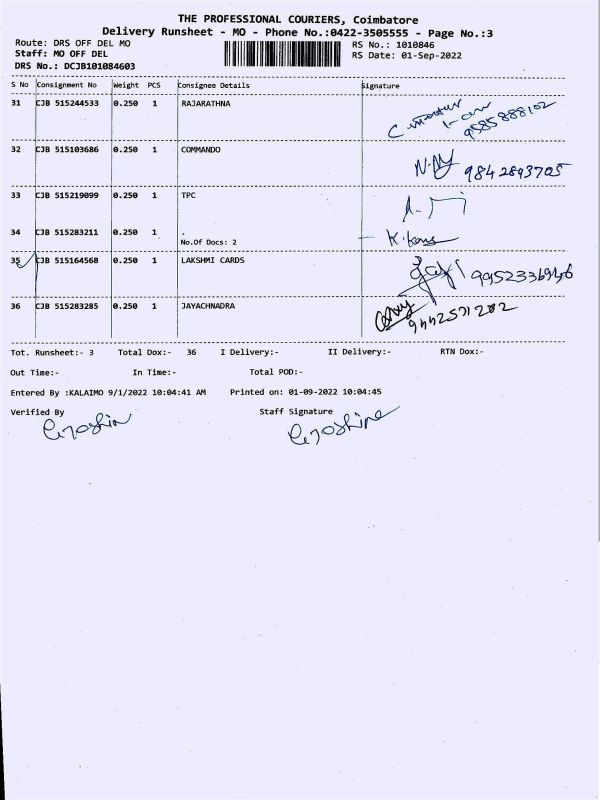 THE PROFESSIONAL COURIERS, Coimbatore
Delivery Runsheet - MO - Phone No.:0422-3505555 - Page No.:3
Route: DRS OFF DEL MO RS No.: 1010846
Staff: MO OFF DEL RS Date: 01-Sep-2022
DRS No.: DCJB101084603
S No Consignment No Weight PCS Consignee Details Signature
31 CJB 515244533 0.250 1 RAJARATHNA
9585888102
32 CJB 515103686 0.250 1 COMMANDO
9842893705
33 CJB 515219099 0.250 1 TPC
34 CJB 515283211 0.250 1 .
No.Of Docs: 2
35 CJB 515164568 0.250 1 LAKSHMI CARDS
36 CJB 515283285 0.250 1 JAYACHNADRA
Tot. Runsheet:- 3 Total Dox:- 36 I Delivery:- II Delivery:- RTN Dox:-
Out Time:- In Time:- Total POD:-
Entered By :KALAIMO 9/1/2022 10:04:41 AM Printed on: 01-09-2022 10:04:45
Verified By Staff Signature